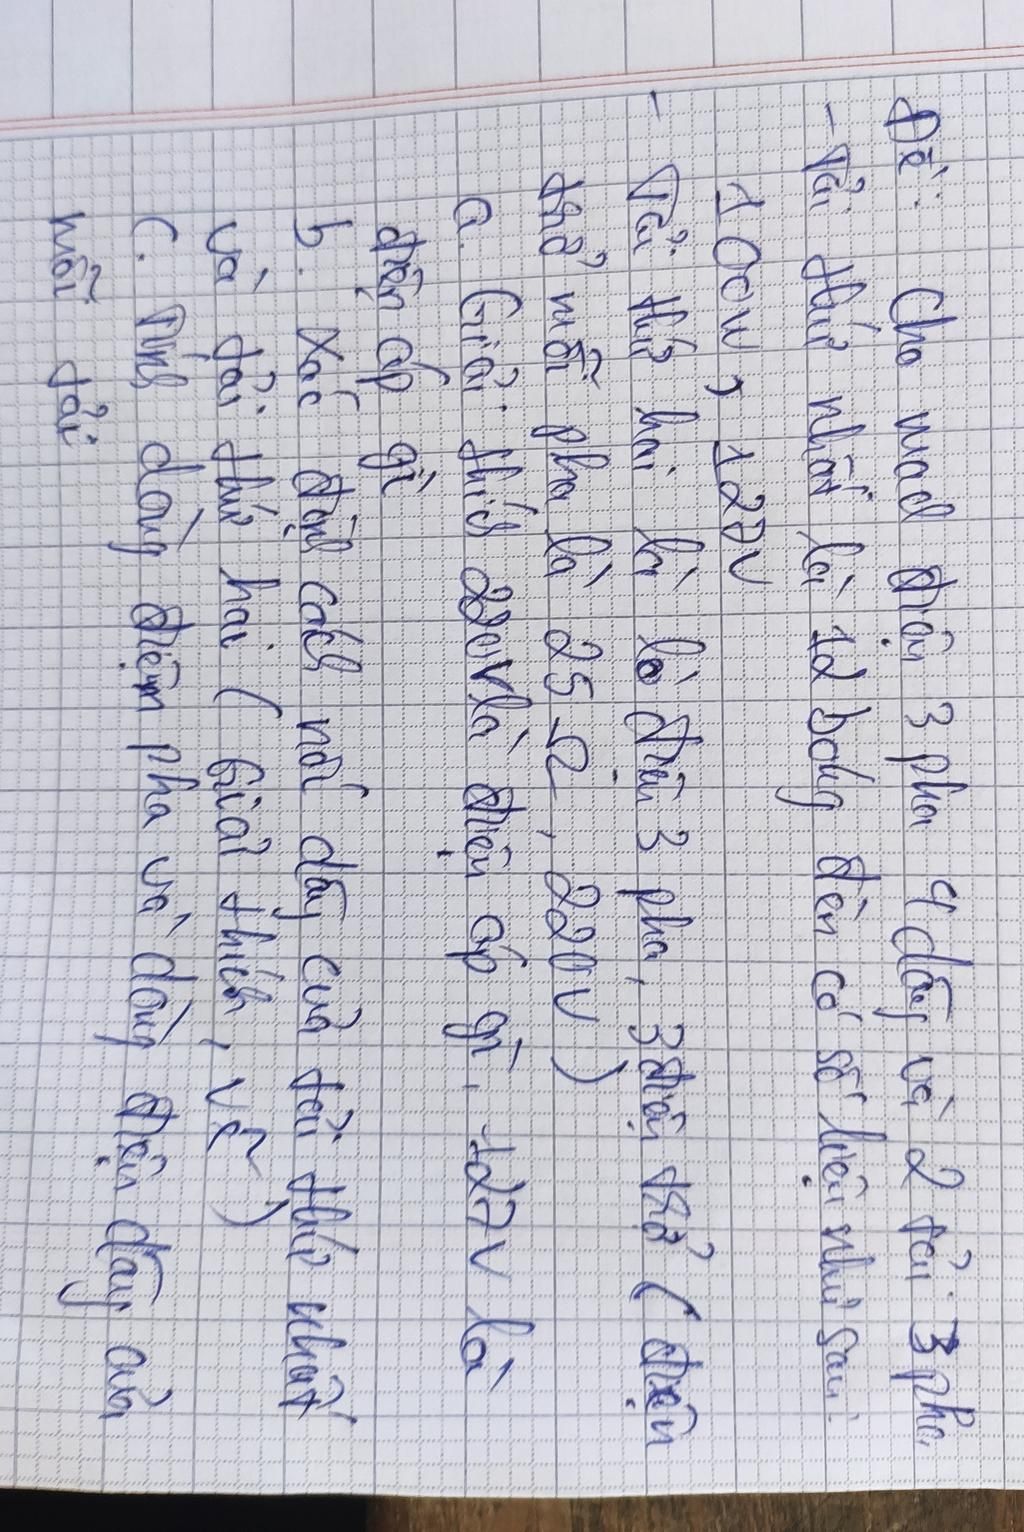 Đề: Cho mạch điện 3 pha 4 dây và 2 tải 3 pha
- Tải thứ nhất là 12 bóng đèn có số liệu như sau:
100W, 127V
- Tải thứ hai là lò điện 3 pha, 3 điện trở (điện
trở mỗi pha là 25 Ω, 220V)
a. Giải thích 220V là điện áp gì, 127V là
điện áp gì
b. Xác định cách nối dây của tải thứ nhất
và tải thứ hai (Giải thích, vẽ)
c. Tính dòng điệm pha và dòng điện dây của
mỗi tải